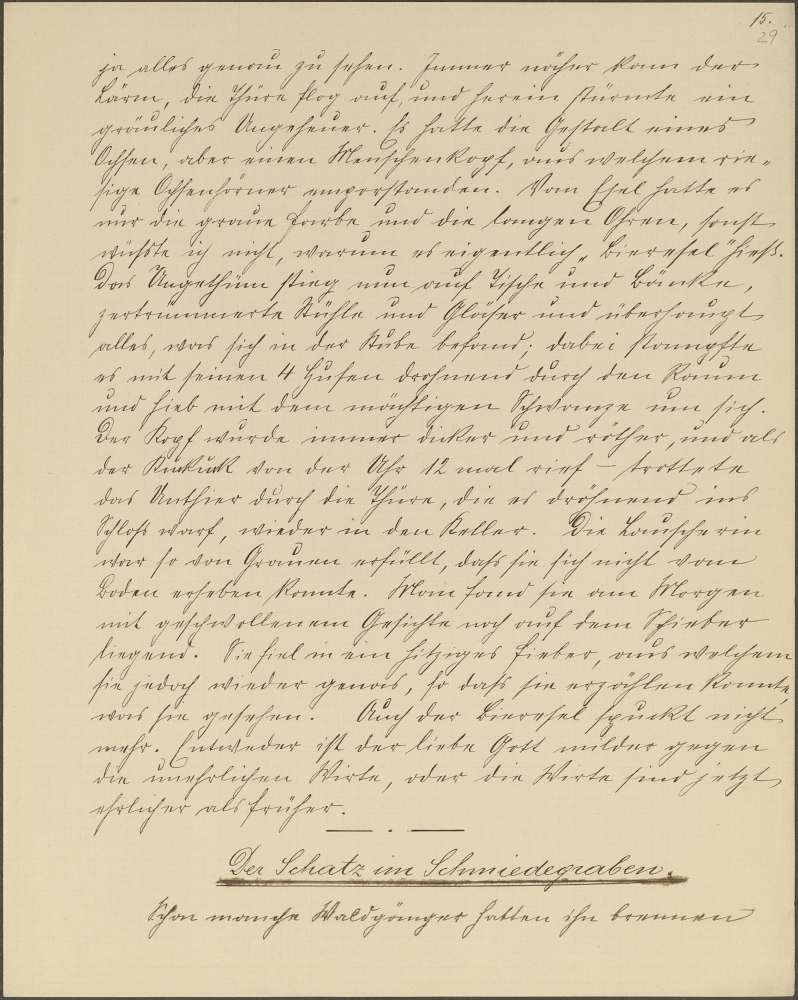 15.
29
ja alles genau zu sehen. Immer näher kam der
Lärm, die Thüre flog auf, und herein stürmte ein
gräuliches Ungeheuer. Es hatte die Gestalt eines
Ochsen, aber einen Menschenkopf, aus welchem rie-
sige Ochsenhörner emporstanden. Vom Esel hatte es
nur die graue Farbe und die langen Ohren, sonst
wüßte ich nicht, warum es eigentlich „Bieresel" hieß.
Das Ungethüm stieg nun auf Tische und Bänke,
zertrümmerte Stühle und Gläser und überhaupt
alles, was sich in der Stube befand; dabei stampfte
es mit seinen 4 Hufen drohnend durch den Raum
und hieb mit dem mächtigen Schwanze um sich.
Der Kopf wurde immer dicker und röther, und als
der Kuckuck von der Uhr 12 mal rief – trottete
das Unthier durch die Thüre, die es dröhnend ins
Schloß warf, wieder in den Keller. Die Lauscherin
war so von Grauen erfüllt, daß sie sich nicht vom
Boden erheben konnte. Man fand sie am Morgen
mit geschwollenem Gesichte noch auf dem Schieber
liegend. Sie fiel in ein hitziges Fieber, aus welchem
sie jedoch wieder genas, so daß sie erzählen konnte,
was sie gesehen. Auch der Bieresel spuckt nicht
mehr. Entweder ist der liebe Gott milder gegen
die unehrlichen Wirte, oder die Wirte sind jetzt
ehrlicher als früher.
Der Schatz im Schmiedegraben.
Schon manche Waldgänger hatten ihn brennen